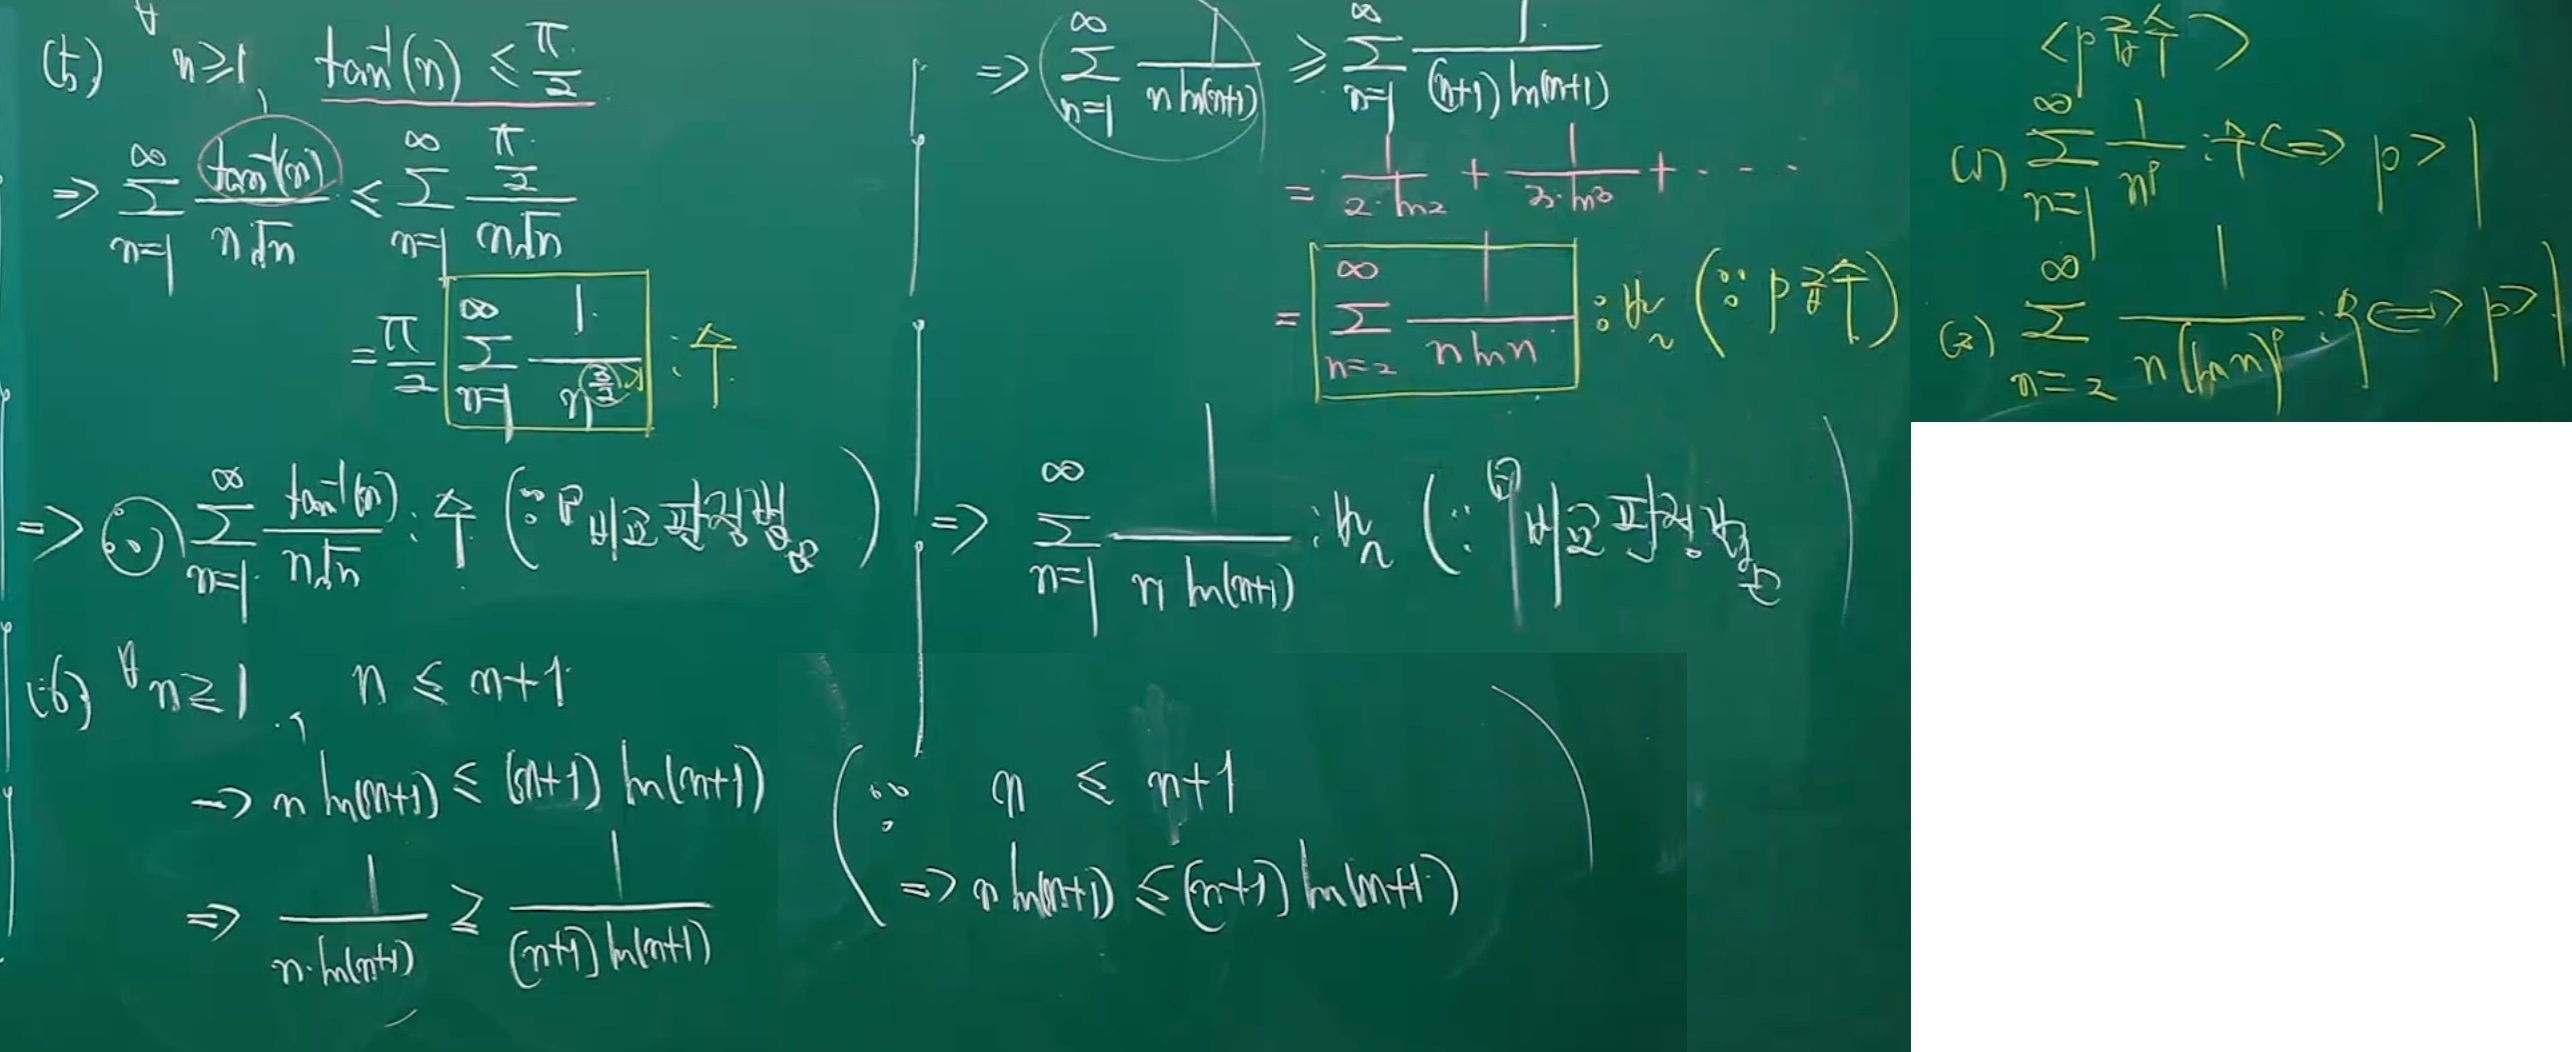 (5) ∀n≥1, tan⁻¹(n) ≤ π/2
⇒ ∑_{n=1}^{∞} tan⁻¹(n)/(n√n) ≤ ∑_{n=1}^{∞} (π/2)/(n√n)
= π/2 ∑_{n=1}^{∞} 1/n^{3/2} : 수
⇒ ∴ ∑_{n=1}^{∞} tan⁻¹(n)/(n√n) : 수 (∵ 비교판정법)
(6) ∀n≥1, n ≤ n+1
→ n ln(n+1) ≤ (n+1) ln(n+1)
⇒ 1/(n·ln(n+1)) ≥ 1/((n+1) ln(n+1))
(∵ n ≤ n+1
⇒ n ln(n+1) ≤ (n+1) ln(n+1))
⇒ ∑_{n=1}^{∞} 1/(n ln(n+1)) ≥ ∑_{n=1}^{∞} 1/((n+1) ln(n+1))
= 1/(2·ln2) + 1/(3·ln3) + ⋯
= ∑_{n=2}^{∞} 1/(n ln n) : 발 (∵ p급수)
⇒ ∑_{n=1}^{∞} 1/(n ln(n+1)) : 발 (∵ 비교판정법)
<p급수>
(1) ∑_{n=1}^{∞} 1/n^p : 수 ⇔ p>1
(2) ∑_{n=2}^{∞} 1/(n(ln n)^p) : ⇔ p>1